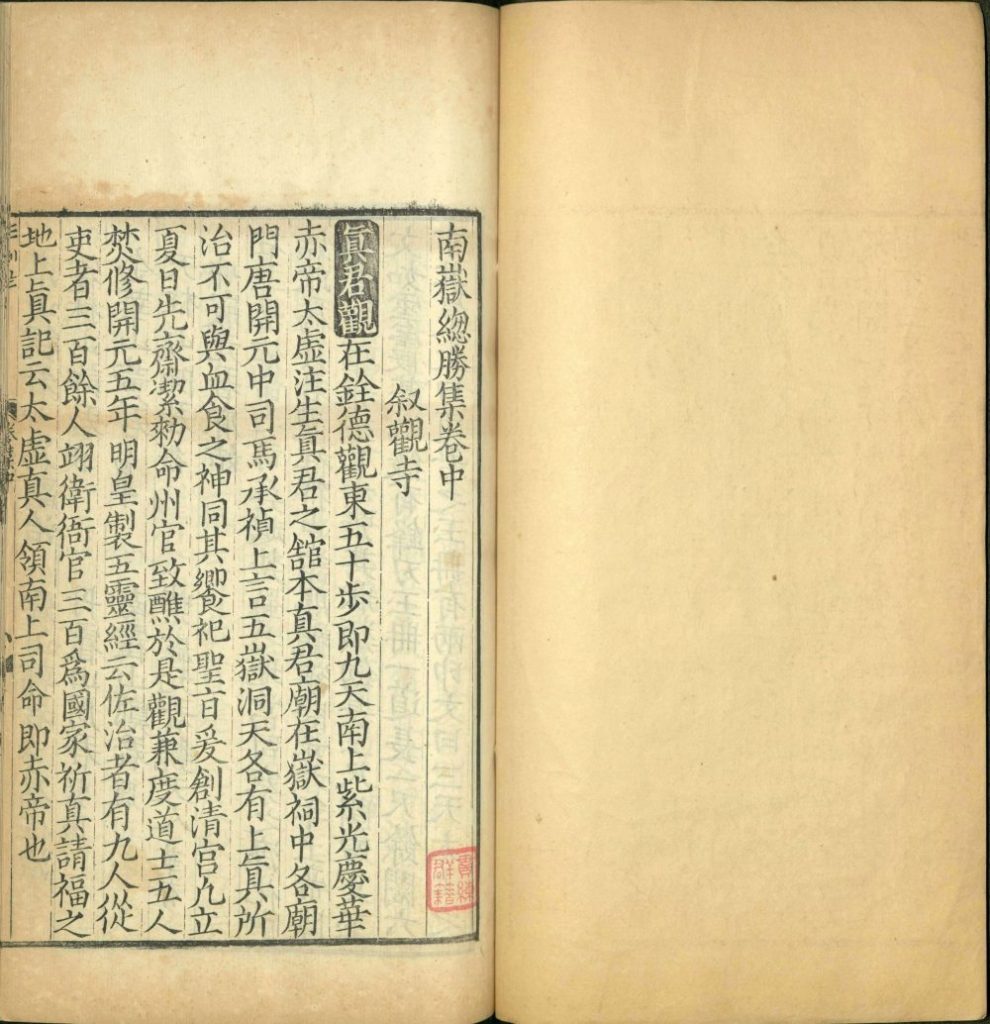 南嶽緫勝集卷中
叙觀寺
眞君觀在銓德觀東五十歩即九天南上紫光慶華
赤帝太虛注生眞君之舘本真君廟在嶽祠中各廟
門唐開元中司馬承禎上言五嶽洞天各有上眞所
治不可與血食之神同其饗祀聖旨爰創清宫凢立
夏日先齋潔勑命州官致醮於是觀兼度道士五人
焚修開元五年明皇製五靈經云佐治者有九人從
吏者三百餘人翊衛衙官三百爲國家祈真請福之
地上眞記云太虛真人領南上司命即赤帝也